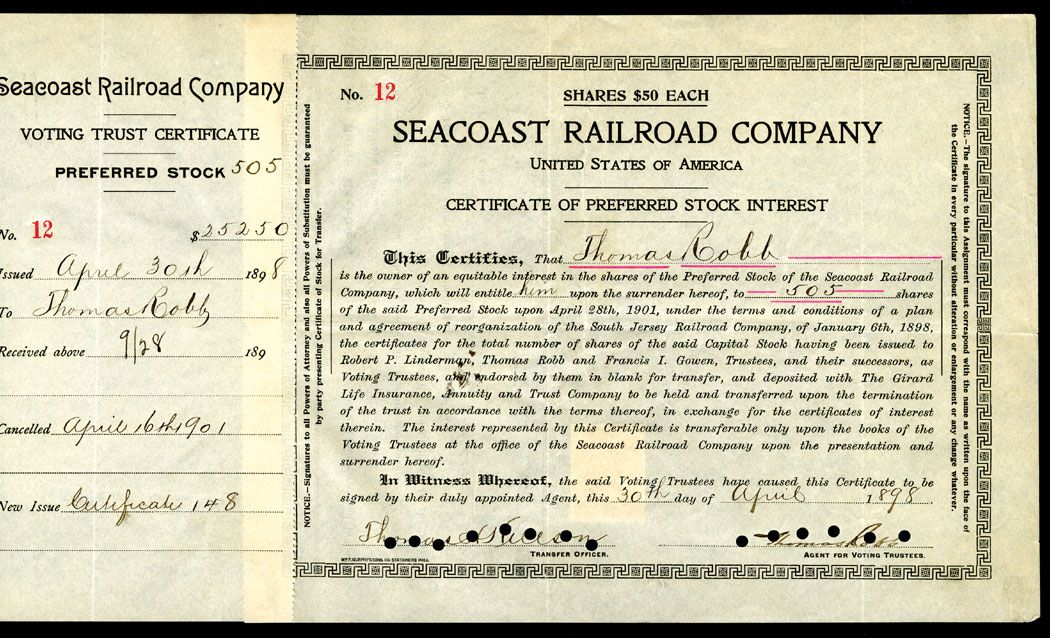 Seacoast Railroad Company
VOTING TRUST CERTIFICATE
PREFERRED STOCK 505
No. 12 $25250
Issued April 30th 1898
To Thomas Robb
Received above 9/28 189
Cancelled April 16th 1901
New Issue Certificate 148
NOTICE.—Signatures to all Powers of Attorney and also all Powers of Substitution must be guaranteed
by party presenting Certificate of Stock for Transfer.
No. 12
SHARES $50 EACH
SEACOAST RAILROAD COMPANY
UNITED STATES OF AMERICA
CERTIFICATE OF PREFERRED STOCK INTEREST
This Certifies, That Thomas Robb
is the owner of an equitable interest in the shares of the Preferred Stock of the Seacoast Railroad
Company, which will entitle him upon the surrender hereof, to 505 shares
of the said Preferred Stock upon April 28th, 1901, under the terms and conditions of a plan
and agreement of reorganization of the South Jersey Railroad Company, of January 6th, 1898,
the certificates for the total number of shares of the said Capital Stock having been issued to
Robert P. Linderman, Thomas Robb and Francis I. Gowen, Trustees, and their successors, as
Voting Trustees, and endorsed by them in blank for transfer, and deposited with The Girard
Life Insurance, Annuity and Trust Company to be held and transferred upon the termination
of the trust in accordance with the terms thereof, in exchange for the certificates of interest
therein. The interest represented by this Certificate is transferable only upon the books of the
Voting Trustees at the office of the Seacoast Railroad Company upon the presentation and
surrender hereof.
In Witness Whereof, the said Voting Trustees have caused this Certificate to be
signed by their duly appointed Agent, this 30th day of April 1898.
Thomas Robb
TRANSFER OFFICER.
AGENT FOR VOTING TRUSTEES.
NOTICE.—The signature to this Assignment must correspond with the name as written upon the face of
the Certificate in every particular without alteration or enlargement or any change whatever.